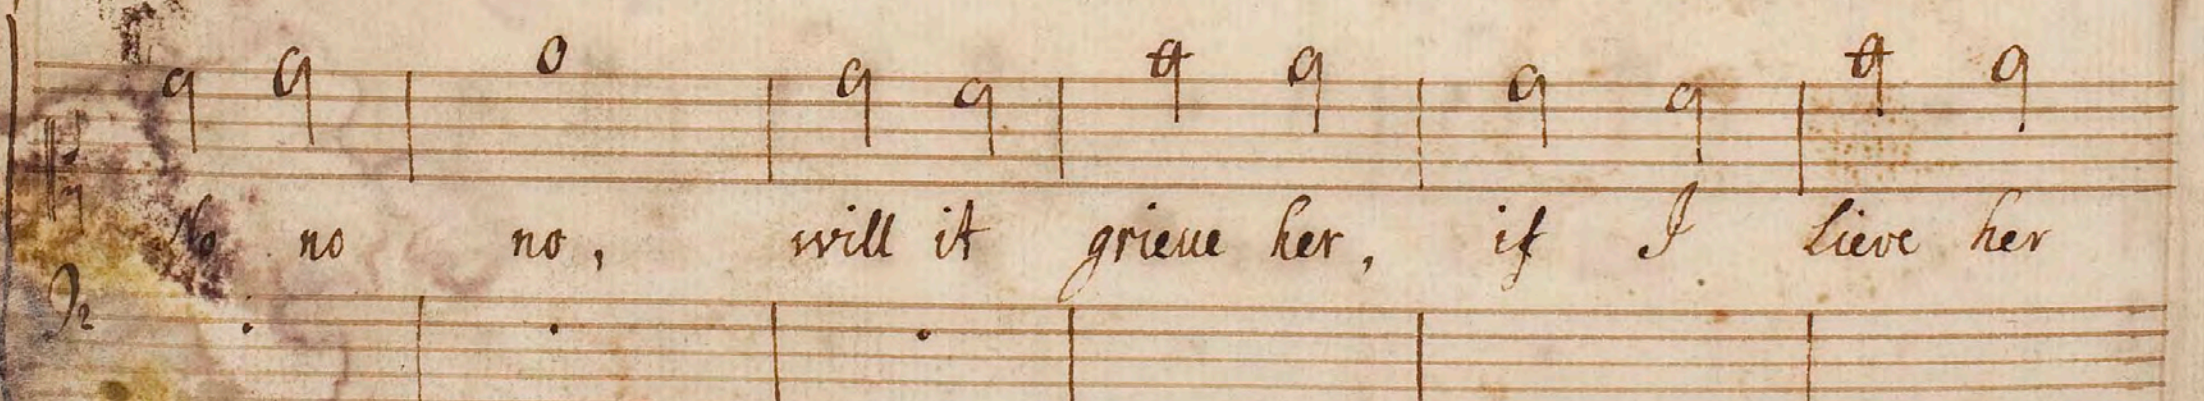 No no no, will it grieue her, if I Lieve her